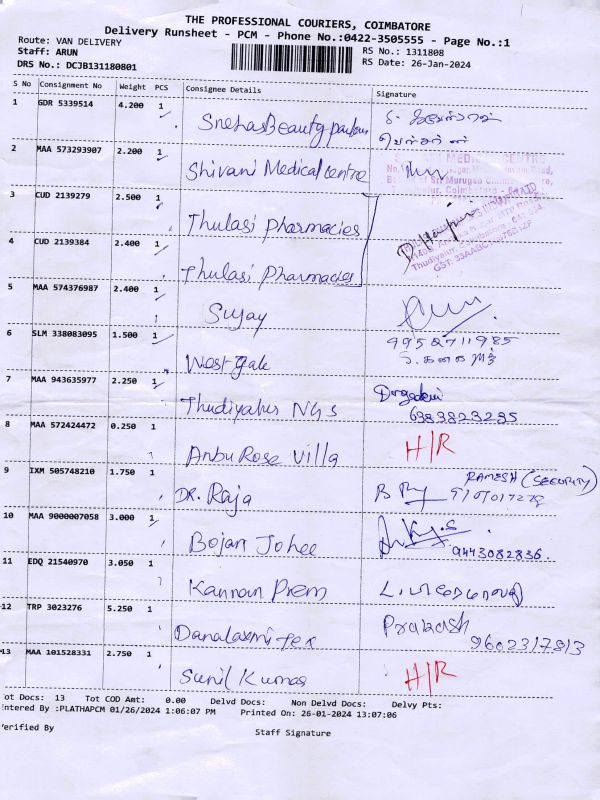 THE PROFESSIONAL COURIERS, COIMBATORE
Delivery Runsheet - PCM - Phone No.:0422-3505555 - Page No.:1
Route: VAN DELIVERY
RS No.: 1311808
Staff: ARUN
RS Date: 26-Jan-2024
DRS No.: DCJB131180801
S No Consignment No Weight PCS Consignee Details Signature
1 GDR 5339514 4.200 1 Sneha Beauty parlour
2 MAA 573293907 2.200 1 Shivani Medical centre
3 CUD 2139279 2.500 1 Thulasi Pharmacies
4 CUD 2139384 2.400 1 Thulasi Pharmacies
5 MAA 574376987 2.400 1 Sujay
6 SLM 338083095 1.500 1 West gate 9952711985
7 MAA 943635977 2.250 1 Thudiyalur NGS Durgadevi
6383823285
8 MAA 572424472 0.250 1 Anbu Rose Villa H/R
9 IXM 505748210 1.750 1 DR. Raja RAMESH (SECURITY)
10 MAA 9000007058 3.000 1 Bojan Johee 9443082836.
11 EDQ 21540970 3.050 1 Kannan Prem
12 TRP 3023276 5.250 1 Danalaxmi tex Prakash
9602317813
13 MAA 101528331 2.750 1 Sunil Kumar H/R
ot Docs: 13 Tot COD Amt: 0.00 Delvd Docs: Non Delvd Docs: Delvy Pts:
ntered By :PLATHAPCM 01/26/2024 1:06:07 PM Printed On: 26-01-2024 13:07:06
erified By Staff Signature